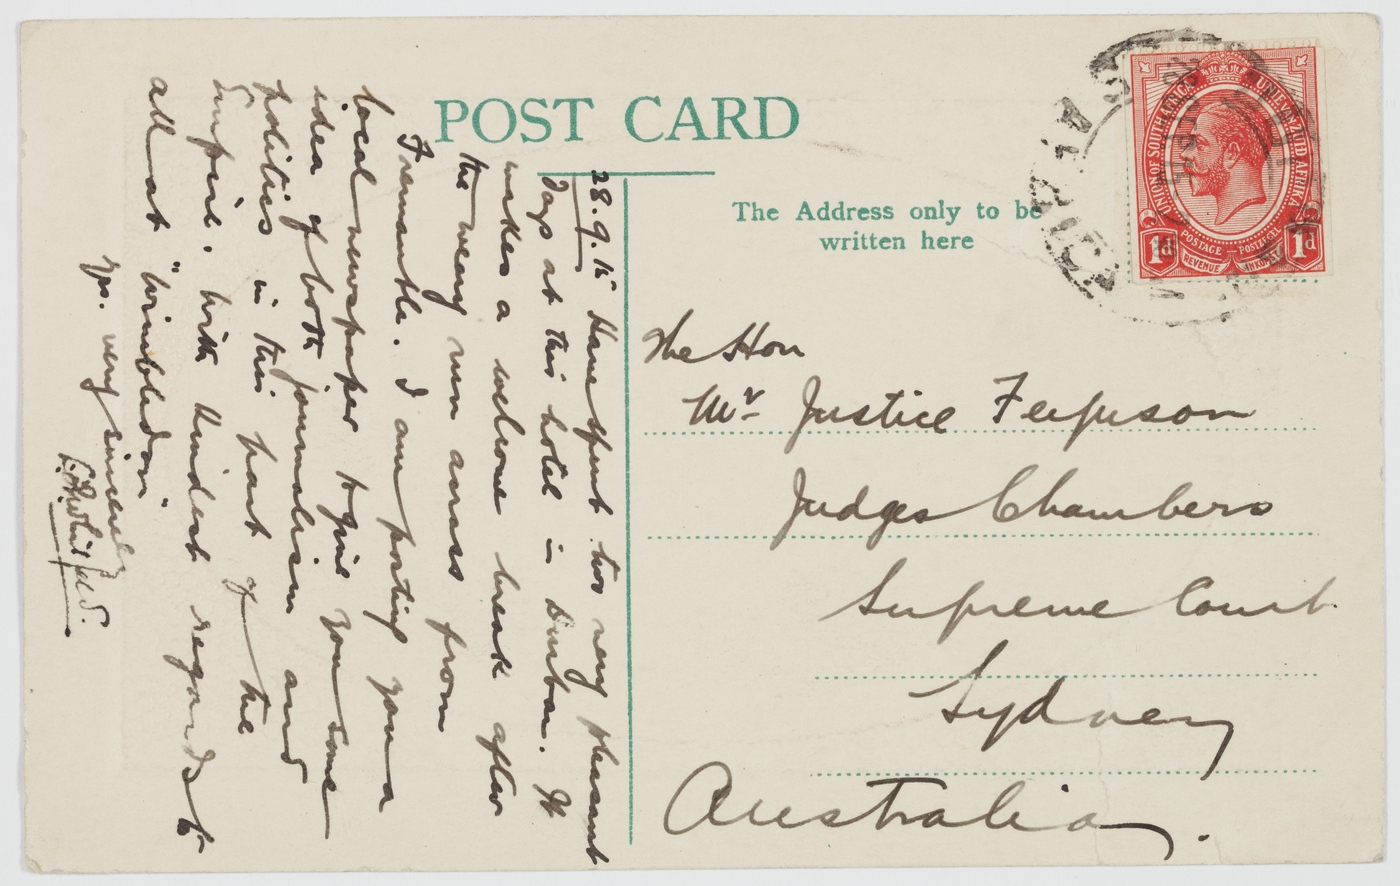 POST CARD
28.9.15 Have spent two very pleasant
days at this hotel in Durban. It
makes a welcome break after
the weary run across from
Fremantle. I am posting you a
local newspaper to give you some
idea of both journalism and
politics in this part of the
Empire. With kindest regards to
all at "Wimbledon"
Yrs. very sincerely
The Address only to be
written here
The Hon
Mr Justice Ferguson
Judges Chambers
Supreme Court
Sydney
Australia.
UNION OF SOUTH AFRICA
UNIE VAN ZUID AFRIKA
POSTAGE POSTZEGEL
REVENUE INKOMST
1d 1d